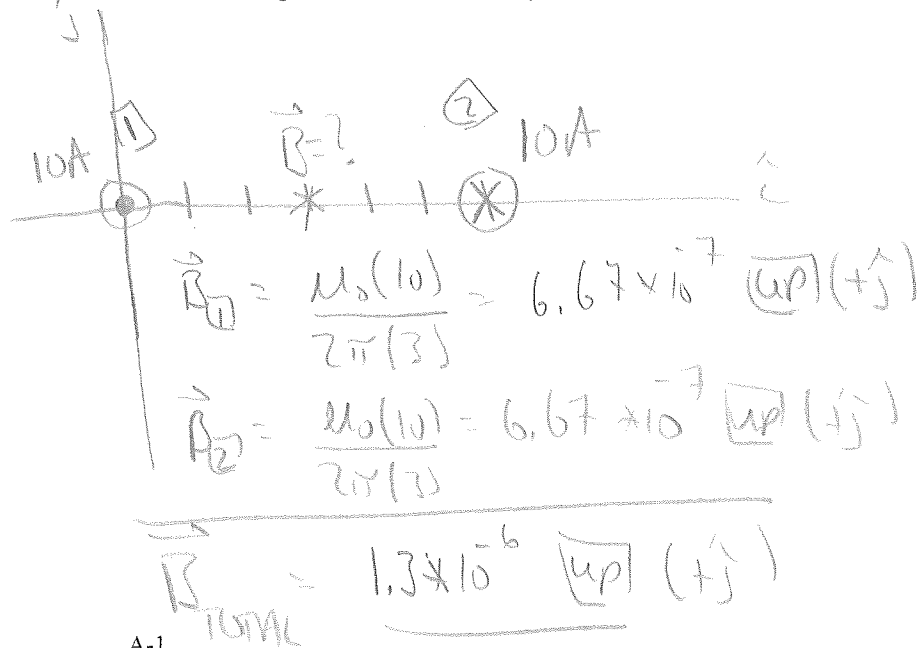 ĵ
1
2
10A
B⃗=?
10A
î
B⃗1 = μ0(10) / 2π(3) = 6.67×10^-7 up (+ĵ)
B⃗2 = μ0(10) / 2π(3) = 6.67×10^-7 up (+ĵ)
B⃗TOTAL = 1.3×10^-6 up (+ĵ)
A-1